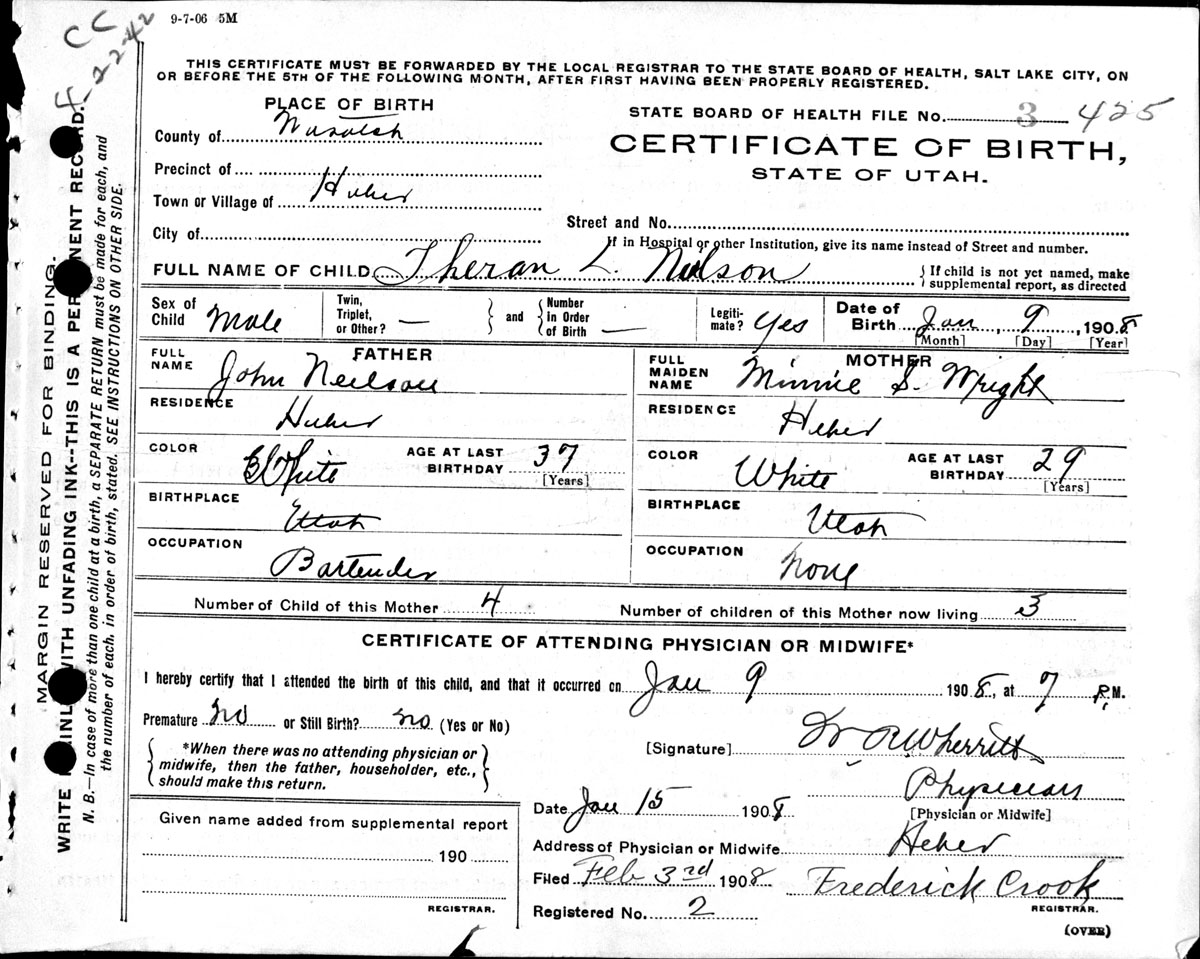 9-7-06 5M
CC
THIS CERTIFICATE MUST BE FORWARDED BY THE LOCAL REGISTRAR TO THE STATE BOARD OF HEALTH, SALT LAKE CITY, ON
OR BEFORE THE 5TH OF THE FOLLOWING MONTH, AFTER FIRST HAVING BEEN PROPERLY REGISTERED.
PLACE OF BIRTH
STATE BOARD OF HEALTH FILE No. 3 425
County of Wasatch
CERTIFICATE OF BIRTH,
Precinct of
STATE OF UTAH.
Town or Village of Heber
Street and No.
City of
If in Hospital or other Institution, give its name instead of Street and number.
FULL NAME OF CHILD Theran L. Neilson
{ If child is not yet named, make
supplemental report, as directed
Sex of Child Male
Twin, Triplet, or Other? —
} and {
Number in Order of Birth —
Legiti-mate? Yes
Date of Birth Jan, 9, 1908
[Month] [Day] [Year]
FATHER
FULL NAME John Neilson
RESIDENCE Heber
COLOR White
AGE AT LAST BIRTHDAY 37
[Years]
BIRTHPLACE Utah
OCCUPATION Bartender
MOTHER
FULL MAIDEN NAME Minnie S. Wright
RESIDENCE Heber
COLOR White
AGE AT LAST BIRTHDAY 29
[Years]
BIRTHPLACE Utah
OCCUPATION None
Number of Child of this Mother 4
Number of children of this Mother now living 3
CERTIFICATE OF ATTENDING PHYSICIAN OR MIDWIFE*
I hereby certify that I attended the birth of this child, and that it occurred on Jan 9 1908, at 7 P.M.
Premature No or Still Birth? No (Yes or No)
{ *When there was no attending physician or
midwife, then the father, householder, etc.,
should make this return. }
[Signature] Wherritt
Physician
[Physician or Midwife]
Date Jan 15 1908
Address of Physician or Midwife Heber
Filed Feb 3rd 1908 Frederick Crook
REGISTRAR.
Registered No. 2
(OVER)
Given name added from supplemental report
190
REGISTRAR.
MARGIN RESERVED FOR BINDING.
WRITE PLAINLY WITH UNFADING INK--THIS IS A PERMANENT RECORD.
N. B.—In case of more than one child at a birth, a SEPARATE RETURN must be made for each, and
the number of each, in order of birth, stated. SEE INSTRUCTIONS ON OTHER SIDE.